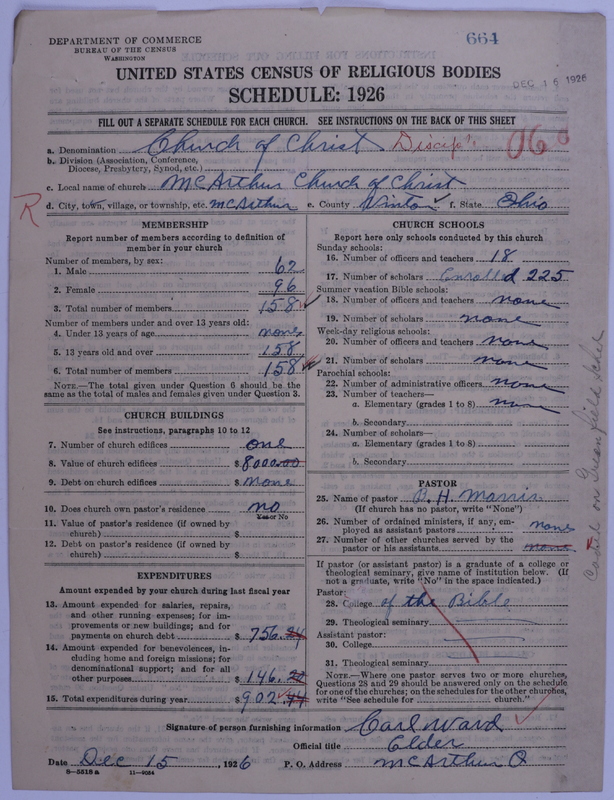 DEPARTMENT OF COMMERCE
BUREAU OF THE CENSUS
WASHINGTON
664
UNITED STATES CENSUS OF RELIGIOUS BODIES
DEC 16 1926
SCHEDULE: 1926
FILL OUT A SEPARATE SCHEDULE FOR EACH CHURCH. SEE INSTRUCTIONS ON THE BACK OF THIS SHEET
a. Denomination Church of Christ Discip's
b. Division (Association, Conference, Diocese, Presbytery, Synod, etc.)
c. Local name of church McArthur Church of Christ
R
d. City, town, village, or township, etc. McArthur e. County Vinton f. State Ohio
MEMBERSHIP
Report number of members according to definition of member in your church
Number of members, by sex:
1. Male 62
2. Female 96
3. Total number of members 158
Number of members under and over 13 years old:
4. Under 13 years of age none
5. 13 years old and over 158
6. Total number of members 158
NOTE.—The total given under Question 6 should be the same as the total of males and females given under Question 3.
CHURCH BUILDINGS
See instructions, paragraphs 10 to 12
7. Number of church edifices one
8. Value of church edifices $ 8000.00
9. Debt on church edifices $ none
10. Does church own pastor's residence no
Yes or No
11. Value of pastor's residence (if owned by church) $
12. Debt on pastor's residence (if owned by church) $
EXPENDITURES
Amount expended by your church during last fiscal year
13. Amount expended for salaries, repairs, and other running expenses; for improvements or new buildings; and for payments on church debt $ 756.24
14. Amount expended for benevolences, including home and foreign missions; for denominational support; and for all other purposes $ 146.20
15. Total expenditures during year $ 902.44
CHURCH SCHOOLS
Report here only schools conducted by this church
Sunday schools:
16. Number of officers and teachers 18
17. Number of scholars Enrolled 225
Summer vacation Bible schools:
18. Number of officers and teachers none
19. Number of scholars none
Week-day religious schools:
20. Number of officers and teachers none
21. Number of scholars none
Parochial schools:
22. Number of administrative officers none
23. Number of teachers—
a. Elementary (grades 1 to 8) none
b. Secondary
24. Number of scholars—
a. Elementary (grades 1 to 8)
b. Secondary
PASTOR
25. Name of pastor B. H. Morris
(If church has no pastor, write "None")
26. Number of ordained ministers, if any, employed as assistant pastors none
27. Number of other churches served by the pastor or his assistants none
If pastor (or assistant pastor) is a graduate of a college or theological seminary, give name of institution below. (If not a graduate, write "No" in the space indicated.)
Pastor:
28. College of the Bible
29. Theological seminary
Assistant pastor:
30. College
31. Theological seminary
NOTE.—Where one pastor serves two or more churches, Questions 28 and 29 should be answered only on the schedule for one of the churches; on the schedules for the other churches, write "See schedule for church."
Signature of person furnishing information Carl Ward
Official title Elder
Date Dec 15, 1926 P. O. Address McArthur O
8-5518a 11-9034